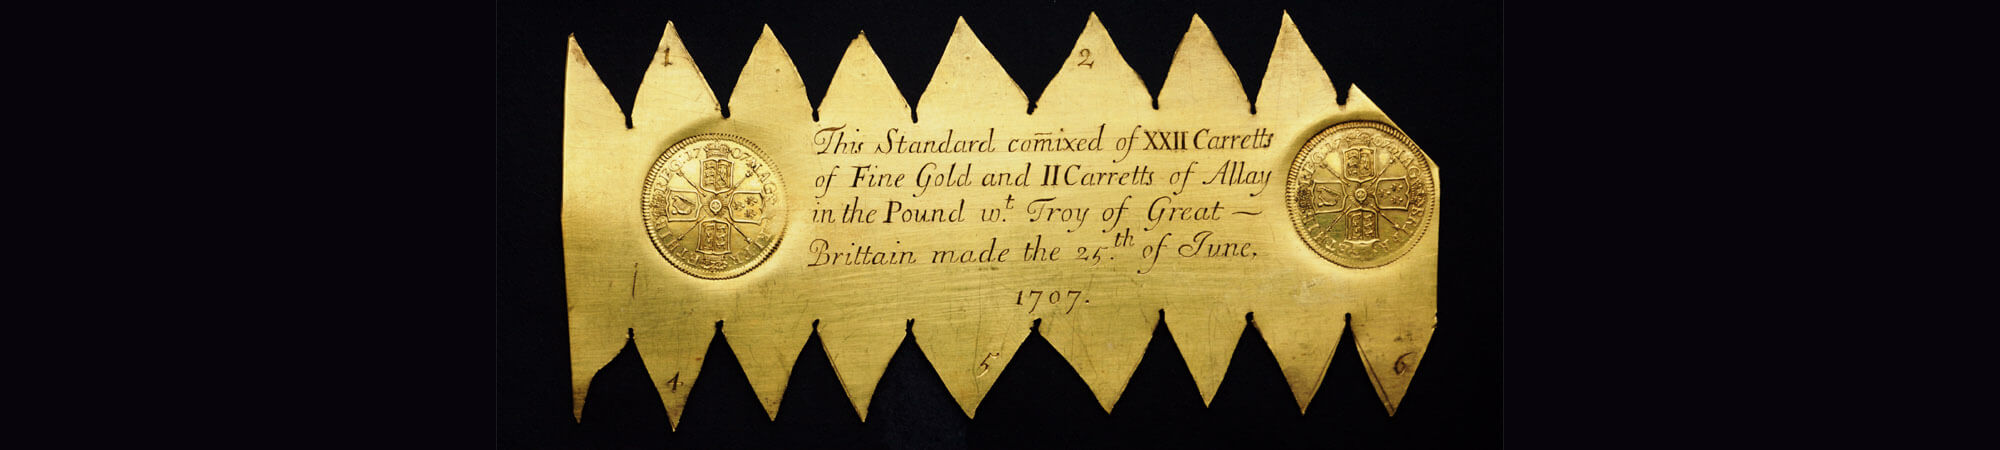 1
2
This Standard com̅ixed of XXII Carretts
of Fine Gold and II Carretts of Allay
in the Pound w.t Troy of Great —
Brittain made the 25.th of June.
1707.
REG 17 07 MAG
REG 17 07 MAG
4
5
6